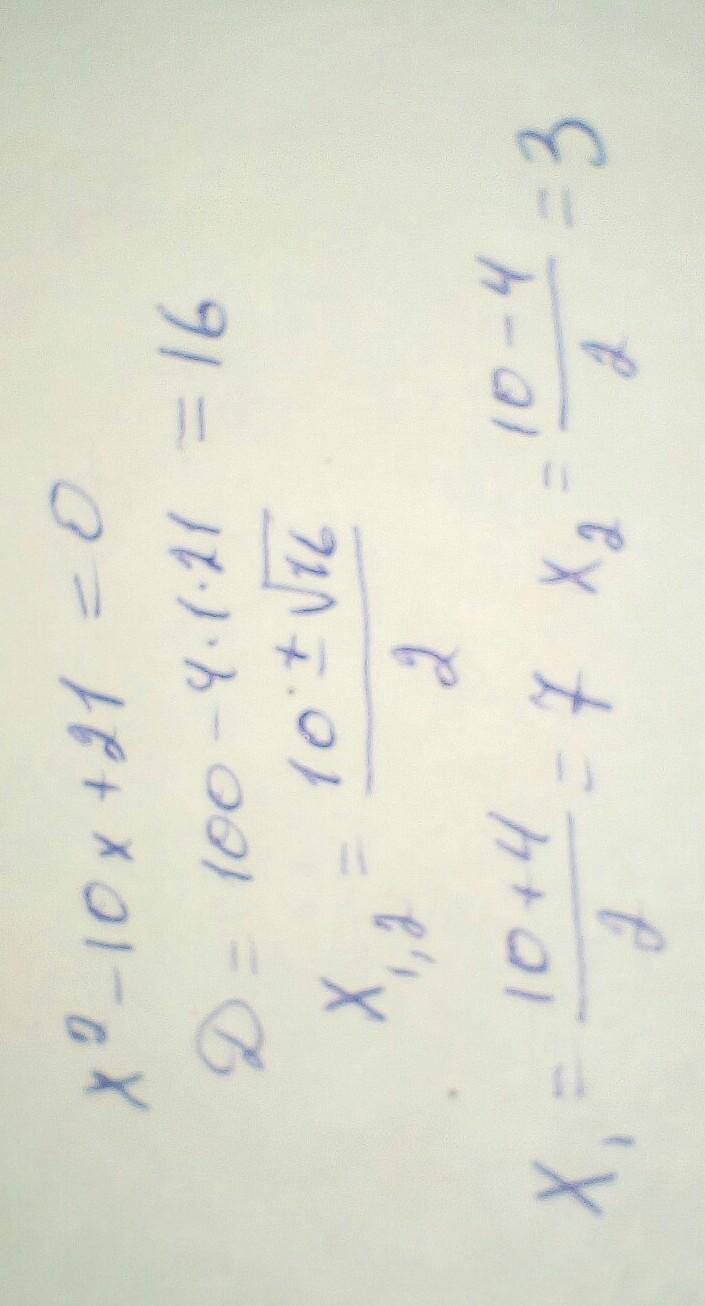 x² - 10x + 21 = 0
D = 100 - 4 · 1 · 21 = 16
x₁,₂ = (10 ± √16) / 2
x₁ = (10 + 4) / 2 = 7 x₂ = (10 - 4) / 2 = 3